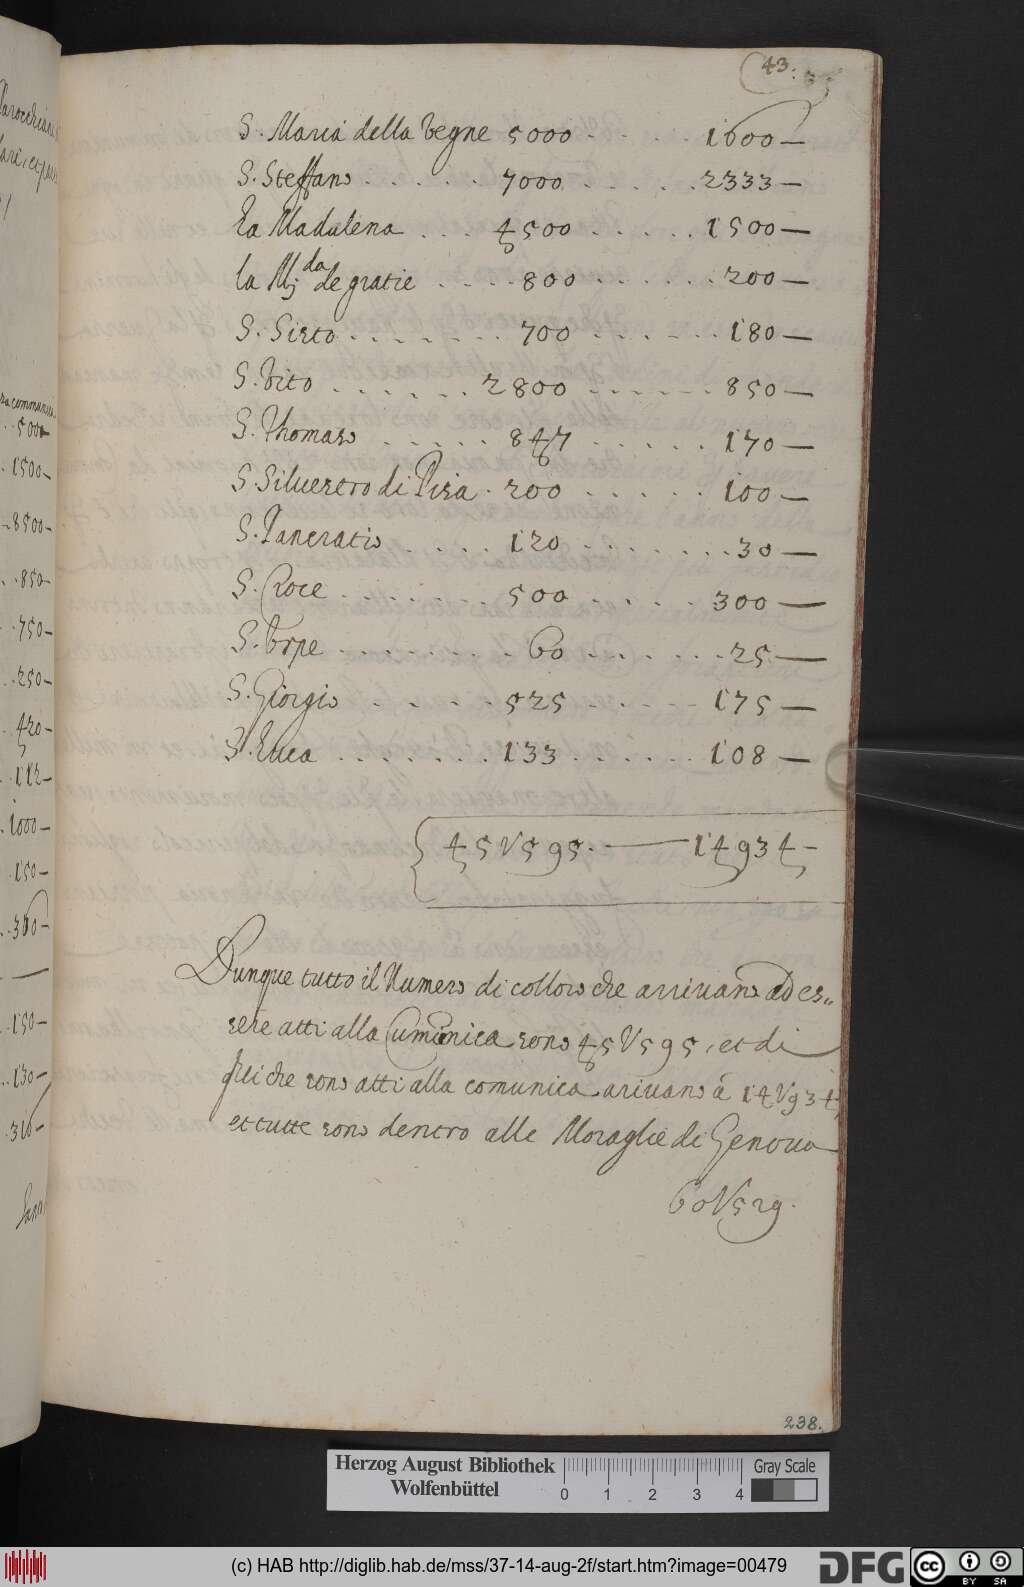 43.
S. Maria della Vegne 5000 . . . . . 1600 —
S. Steffano . . . . . . 7000 . . . . . . 2333 —
La Madalena . . . 4500 . . . . . . 1500 —
la M.da de gratie . . . . 800 . . . . . . 200 —
S. Sisto . . . . . . . . 700 . . . . . . . 180 —
S. Vito . . . . . . . 2800 . . . . . . . 850 —
S. Thomaso . . . . . 847 . . . . . . 170 —
S. Siluestro di Pisa . 200 . . . . . . 100 —
S. Pancratio . . . . 120 . . . . . . . . 30 —
S. Croce . . . . . . . 500 . . . . . 300 —
S. Torpe . . . . . . . . 60 . . . . . . . 25 —
S. Giorgio . . . . . 525 . . . . . . 175 —
S. Luca . . . . . . . 133 . . . . . . 108 —
45V595. — 14934 —
Dunque tutto il Numero di colloro che arriuano ad es„
sere atti alla Cumonica sono 45V595, et di
che sono atti alla comunica ariuano á 14V934
et tutte sono dentro alle Moraglie di Genoua
60V529.
238.
500 —
1500 —
8500 —
. . 850 —
. 750 —
. 250 —
. 420 —
. 112 —
. 1000 —
. 150 —
. . 360 —
. . 150 —
. . 130 —
. 310 —
Herzog August Bibliothek
Wolfenbüttel
0 1 2 3 4
Gray Scale
(c) HAB http://diglib.hab.de/mss/37-14-aug-2f/start.htm?image=00479
DFG
cc BY SA